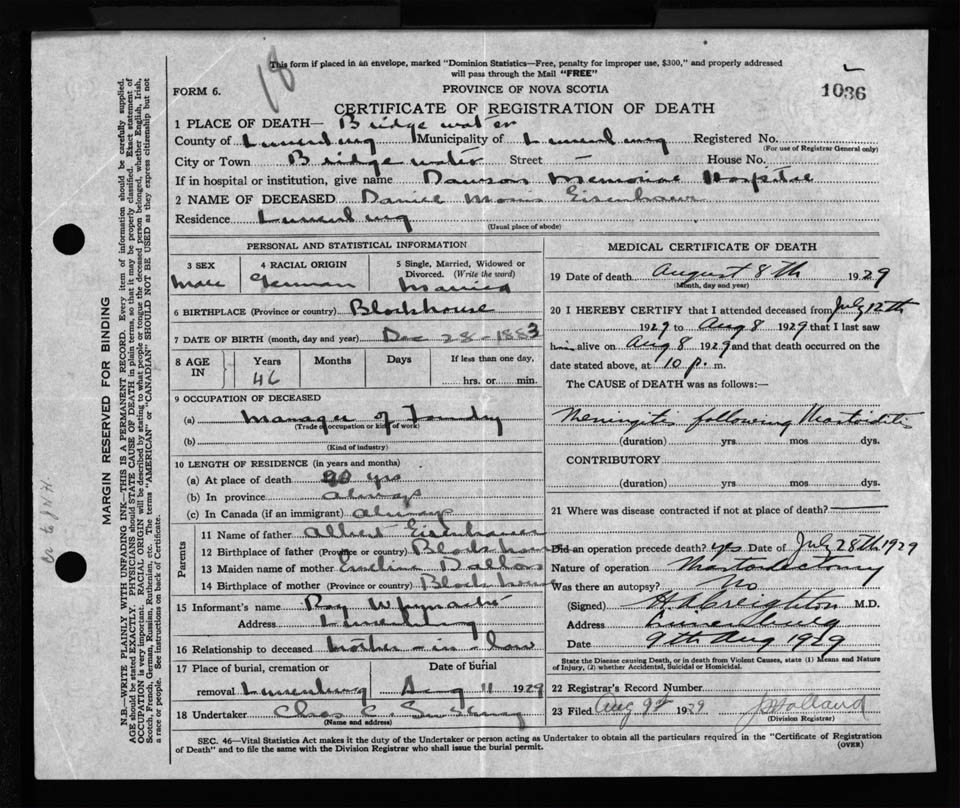 18
This form if placed in an envelope, marked "Dominion Statistics—Free, penalty for improper use, $300," and properly addressed
will pass through the Mail "FREE"
FORM 6.
PROVINCE OF NOVA SCOTIA
1036
CERTIFICATE OF REGISTRATION OF DEATH
1 PLACE OF DEATH— Bridgewater
County of Lunenburg Municipality of Lunenburg Registered No.
(For use of Registrar General only)
City or Town Bridgewater Street — House No.
If in hospital or institution, give name Dawson Memorial Hospital
2 NAME OF DECEASED Daniel Morris Eisenhauer
Residence Lunenburg
(Usual place of abode)
PERSONAL AND STATISTICAL INFORMATION
3 SEX
Male
4 RACIAL ORIGIN
German
5 Single, Married, Widowed or
Divorced. (Write the word)
Married
6 BIRTHPLACE (Province or country) Blockhouse
7 DATE OF BIRTH (month, day and year) Dec 28-1883
8 AGE
IN
Years
46
Months
Days
If less than one day,
hrs. or min.
9 OCCUPATION OF DECEASED
(a) Manager of Foundry
(Trade occupation or kind of work)
(b)
(Kind of industry)
10 LENGTH OF RESIDENCE (in years and months)
(a) At place of death 20 yrs
(b) In province always
(c) In Canada (if an immigrant) always
Parents
11 Name of father Albert Eisenhauer
12 Birthplace of father (Province or country) Blockhouse
13 Maiden name of mother Dalton
14 Birthplace of mother (Province or country) Blockhouse
15 Informant's name Ray
Address Lunenburg
16 Relationship to deceased brother-in-law
17 Place of burial, cremation or
Date of burial
removal Lunenburg Aug 11 1929
18 Undertaker Chas C.
(Name and address)
MEDICAL CERTIFICATE OF DEATH
19 Date of death August 8th 1929
(Month, day and year)
20 I HEREBY CERTIFY that I attended deceased from July 12th
1929 to Aug 8 1929 that I last saw
him alive on Aug 8 1929 and that death occurred on the
date stated above, at 10 p. m.
The CAUSE of DEATH was as follows:—
Meningitis following Mastoiditis
(duration) yrs mos dys.
CONTRIBUTORY
(duration) yrs. mos. dys.
21 Where was disease contracted if not at place of death?
Did an operation precede death? yes Date of July 28th 1929
Nature of operation Mastoidectomy
Was there an autopsy? No
(Signed) H A Creighton M.D.
Address Lunenburg
Date 9th Aug 1929
State the Disease causing Death, or in death from Violent Causes, state (1) Means and Nature
of Injury, (2) whether Accidental, Suicidal or Homicidal.
22 Registrar's Record Number
23 Filed Aug 9th 1929 Holland
(Division Registrar)
SEC. 46—Vital Statistics Act makes it the duty of the Undertaker or person acting as Undertaker to obtain all the particulars required in the "Certificate of Registration
of Death" and to file the same with the Division Registrar who shall issue the burial permit.
(OVER)
MARGIN RESERVED FOR BINDING
N.B.—WRITE PLAINLY WITH UNFADING INK—THIS IS A PERMANENT RECORD. Every item of information should be carefully supplied.
AGE should be stated EXACTLY. PHYSICIANS should STATE CAUSE OF DEATH in plain terms, so that it may be properly classified. Exact statement of
OCCUPATION is very important. RACIAL ORIGIN will be described by stating to what people or tongue the deceased person belonged, whether English, Irish,
Scotch, French, German, Russian, Ruthenian, etc. The terms "AMERICAN" or "CANADIAN" SHOULD NOT BE USED as they express citizenship but not
a race or people. See instructions on back of Certificate.